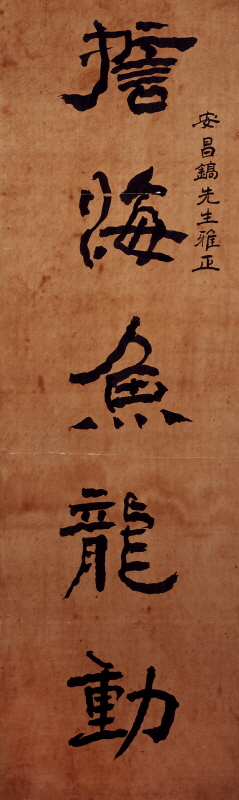 安昌鎬先生雅正
誓海魚龍動